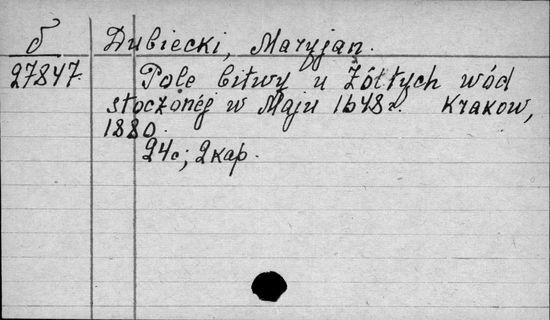 б Dubiecki, Maryjan.
27847. Pole bitwy u Żółtych wód
stoczonéj w Maju 1648r. Krakow,
1880.
24c; 2 кар.